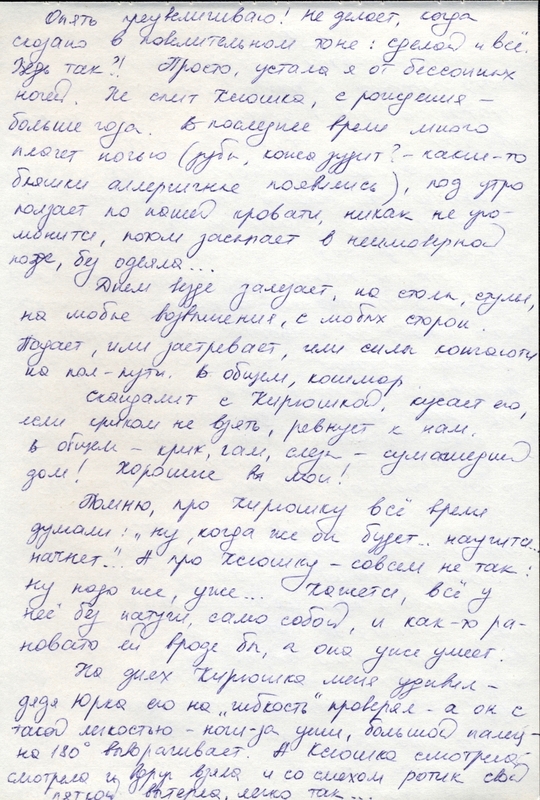 Опять преувеличиваю! Не делает, когда
сказано в повелительном тоне: сделай и всё.
Ведь так?! Просто, устала я от бессонных
ночей. Не спит Ксюшка, с рождения –
больше года. В последнее время много
плачет ночью (зубы, кожа зудит? – какие-то
бляшки аллергичные появились), под утро
ползает по нашей кровати, никак не уго-
монится, потом засыпает в неимоверной
позе, без одеяла...
Днем везде залезает, на столы, стулья,
на любые возвышения, с любых сторон.
Падает, или застревает, или силы кончаются
на пол-пути. В общем, кошмар.
Скандалит с Кирюшкой, кусает его,
если криком не взять, ревнует к нам.
В общем – крик, гам, слезы – сумасшедший
дом! Хорошие вы мои!
Помню, про Кирюшку всё время
думали: „ну, когда же он будет.. научится..
начнет..". А про Ксюшку – совсем не так:
ну надо же, уже... Кажется, всё у
неё без натуги, само собой, и как-то ра-
новато ей вроде бы, а она уже умеет.
На днях Кирюшка меня удивил –
дядя Юрка его на „гибкость" проверял – а он с
такой легкостью – ноги за уши, большой палец –
на 180° выворачивает. А Ксюшка смотрела-
смотрела и вдруг взяла и со смехом ротик свой
пяткой вытерла, легко так...